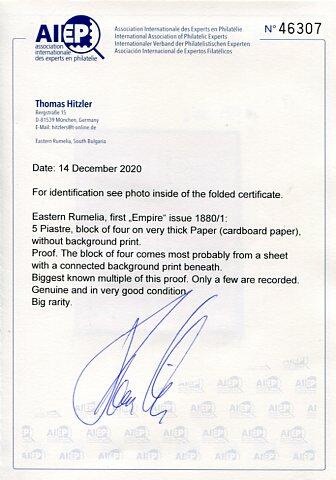 AIEP
association
internationale
des experts en philatélie
Association Internationale des Experts en Philatélie
International Association of Philatelic Experts
Internationaler Verband der Philatelistischen Experten
Asociación Internacional de Expertos Filatélicos
N° 46307
Thomas Hitzler
Bergstraße 15
D-81539 München, Germany
E-Mail: hitzlers@t-online.de
Eastern Rumelia, South Bulgaria
Date: 14 December 2020
For identification see photo inside of the folded certificate.
Eastern Rumelia, first „Empire” issue 1880/1:
5 Piastre, block of four on very thick Paper (cardboard paper),
without background print.
Proof. The block of four comes most probably from a sheet
with a connected background print beneath.
Biggest known multiple of this proof. Only a few are recorded.
Genuine and in very good condition.
Big rarity.